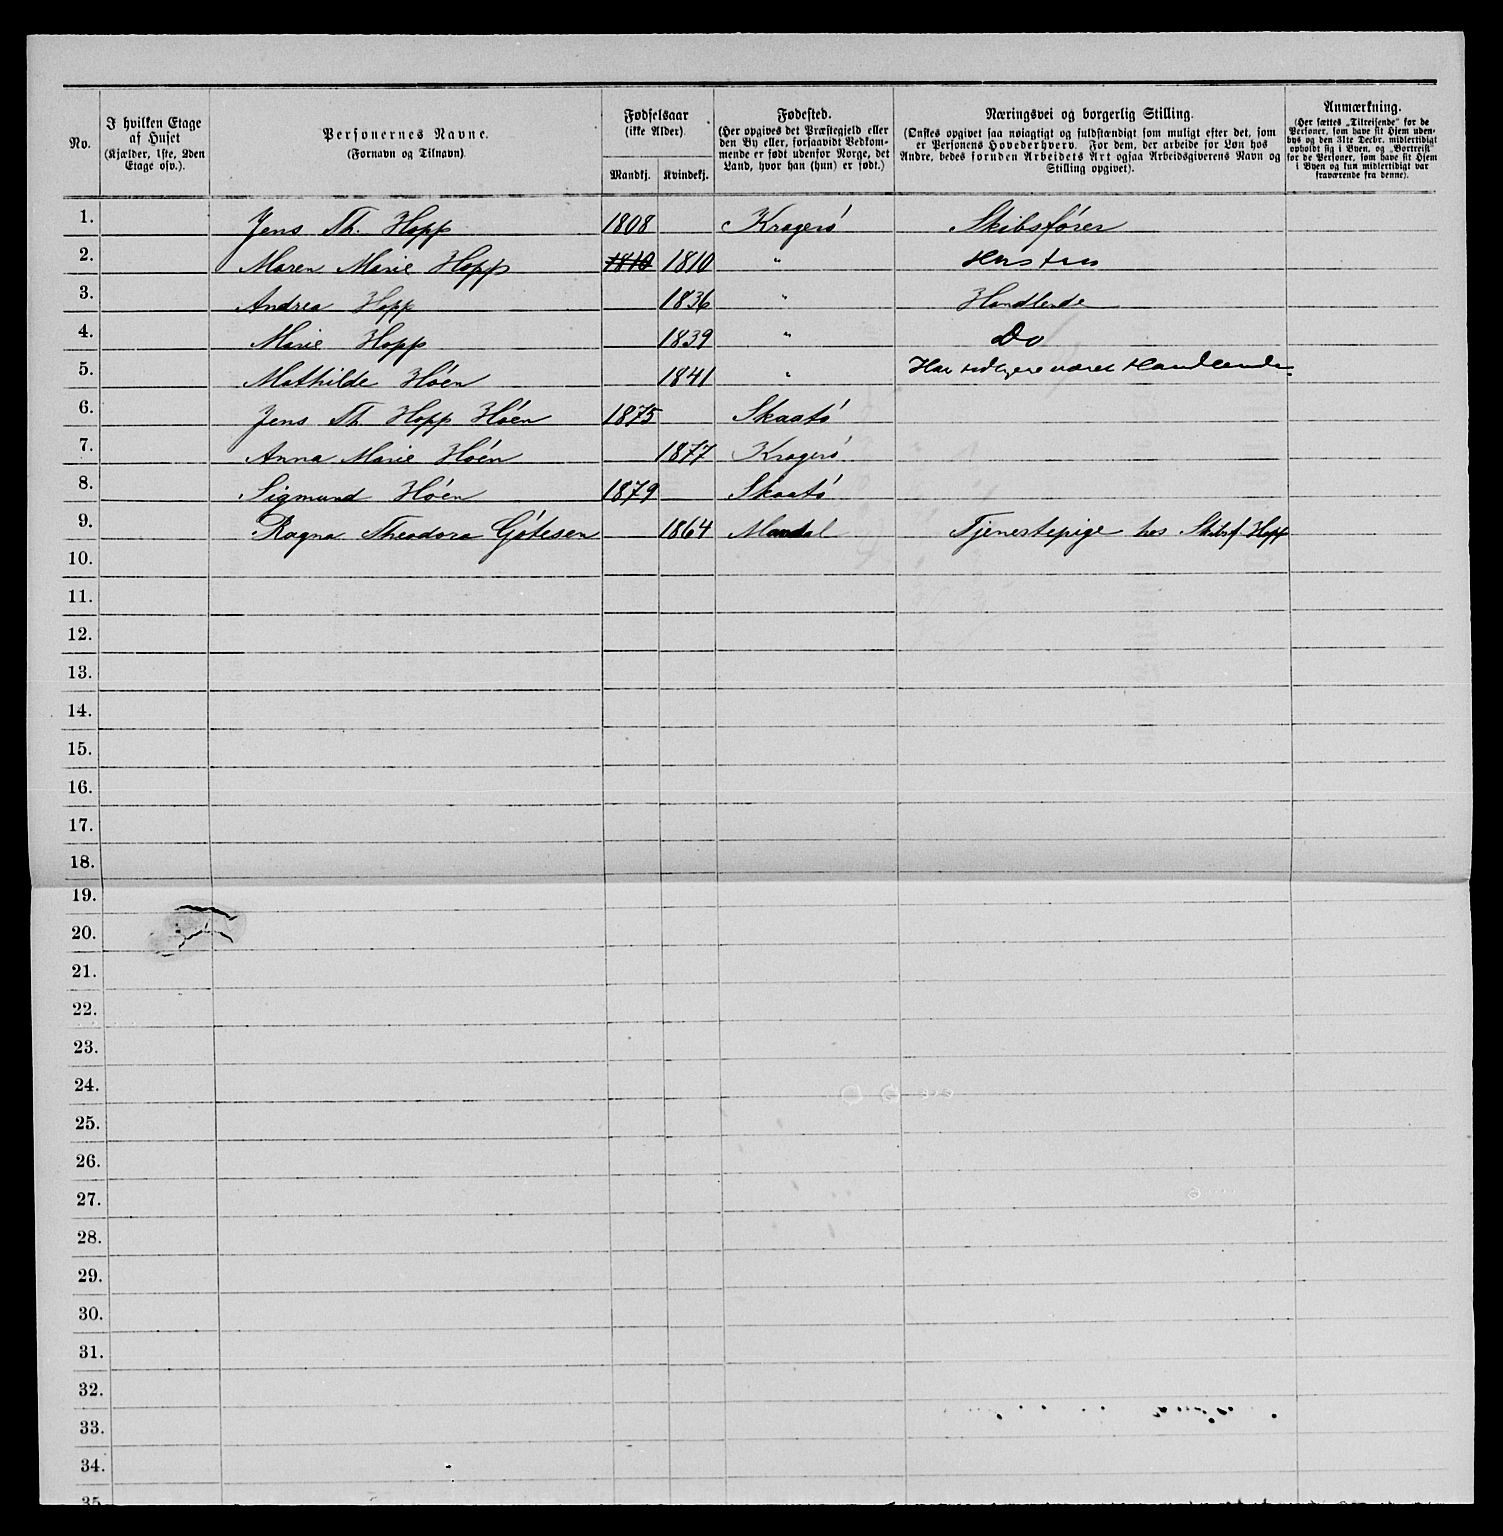 No.
I hvilken Etage
af Huset
(Kjælder, 1ste, 2den
Etage osv.).
Personernes Navne.
(Fornavn og Tilnavn).
Fødselsaar
(ikke Alder).
Mandkj. Kvindekj.
Fødested.
(Her opgives det Præstegjeld eller
den By eller, forsaavidt Vedkom-
mende er født udenfor Norge, det
Land, hvor han (hun) er født.)
Næringsvei og borgerlig Stilling.
(Ønskes opgivet saa nøiagtigt og fuldstændigt som muligt efter det, som
er Personens Hovederhverv. For dem, der arbeide for Løn hos
Andre, bedes foruden Arbeidets Art ogsaa Arbeidsgiverens Navn og
Stilling opgivet).
Anmærkning.
(Her sættes „Tilreisende“ for de
Personer, som have sit Hjem uden-
bys og den 31te Decbr. midlertidigt
opholdt sig i Byen, og „Bortreist“
for de Personer, som have sit Hjem
i Byen og kun midlertidigt var
fraværende fra denne).
1. Jens Th. Hopp 1808 Kragerö Skibsförer
2. Maren Marie Hopp 1810 1810 " Hustru
3. Andrea Hopp 1836 " Handlende
4. Marie Hopp 1839 " Do
5. Mathilde Höen 1841 " Har tidligere været Handlende
6. Jens Th Hopp Höen 1875 Skaatö
7. Anna Marie Höen 1877 Kragerö
8. Sigmund Höen 1879 Skaatö
9. Ragna Theodora Götesen 1864 Mandal Tjenestepige hos Skibsf. Hopp
10.
11.
12.
13.
14.
15.
16.
17.
18.
19.
20.
21.
22.
23.
24.
25.
26.
27.
28.
29.
30.
31.
32.
33.
34.
35